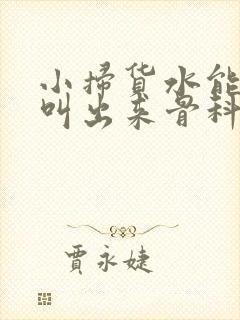 小掃货水能
叫出来骨科
賈永婕